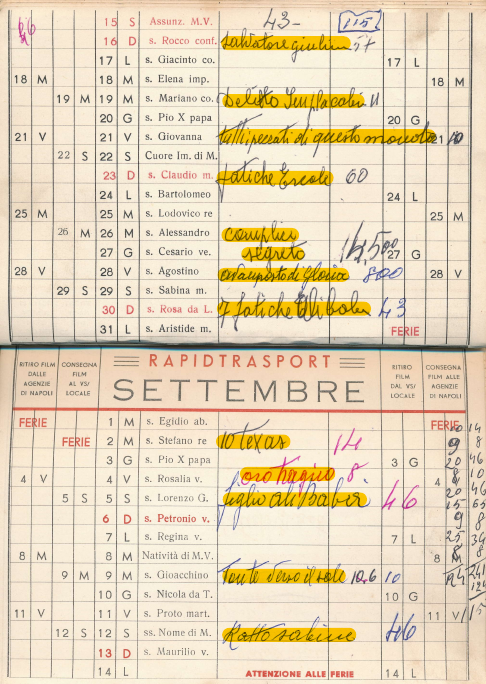 46 15 S Assunz. M.V. 43- 115
16 D s. Rocco conf. Salvatore giuliano 57
17 L s. Giacinto co. 17 L
18 M 18 M s. Elena imp. 18 M
19 M 19 M s. Mariano co. Delitto Implacabile 11
20 G s. Pio X papa 20 G
21 V 21 V s. Giovanna tutti peccati di questo mondo 21 10
22 S 22 S Cuore Im. di M.
23 D s. Claudio m. fatiche Ercole 60
24 L s. Bartolomeo 24 L
25 M 25 M s. Lodovico re 25 M
26 M 26 M s. Alessandro complici
27 G s. Cesario ve. segreto 14,500 27 G
28 V 28 V s. Agostino avamposto di Gloria 800 28 V
29 S 29 S s. Sabina m.
30 D s. Rosa da L. 7 fatiche Alibaba 43
31 L s. Aristide m. FERIE
RITIRO FILM DALLE AGENZIE DI NAPOLI
CONSEGNA FILM AL VS/ LOCALE
RAPIDTRASPORT
SETTEMBRE
RITIRO FILM DAL VS/ LOCALE
CONSEGNA FILM ALLE AGENZIE DI NAPOLI
FERIE 1 M s. Egidio ab. FERIE 10 14
FERIE 2 M s. Stefano re 10 texas 14 9 8
3 G s. Pio X papa 3 G 20 46
4 V 4 V s. Rosalia v. oro tragico 8 4 8 10
5 S 5 S s. Lorenzo G. figlio Ali Baba 46 20 46
6 D s. Petronio v. 15 65
9 8
7 L s. Regina v. 7 L 25 34
8 M 8 M Natività di M.V. 8 M 8 8
9 M 9 M s. Gioacchino 10,6 10 124 241
10 G s. Nicola da T. 10 G 124
11 V 11 V s. Proto mart. 11 V 115
12 S 12 S ss. Nome di M. Ratto sabine 46
13 D s. Maurilio v.
14 L ATTENZIONE ALLE FERIE 14 L